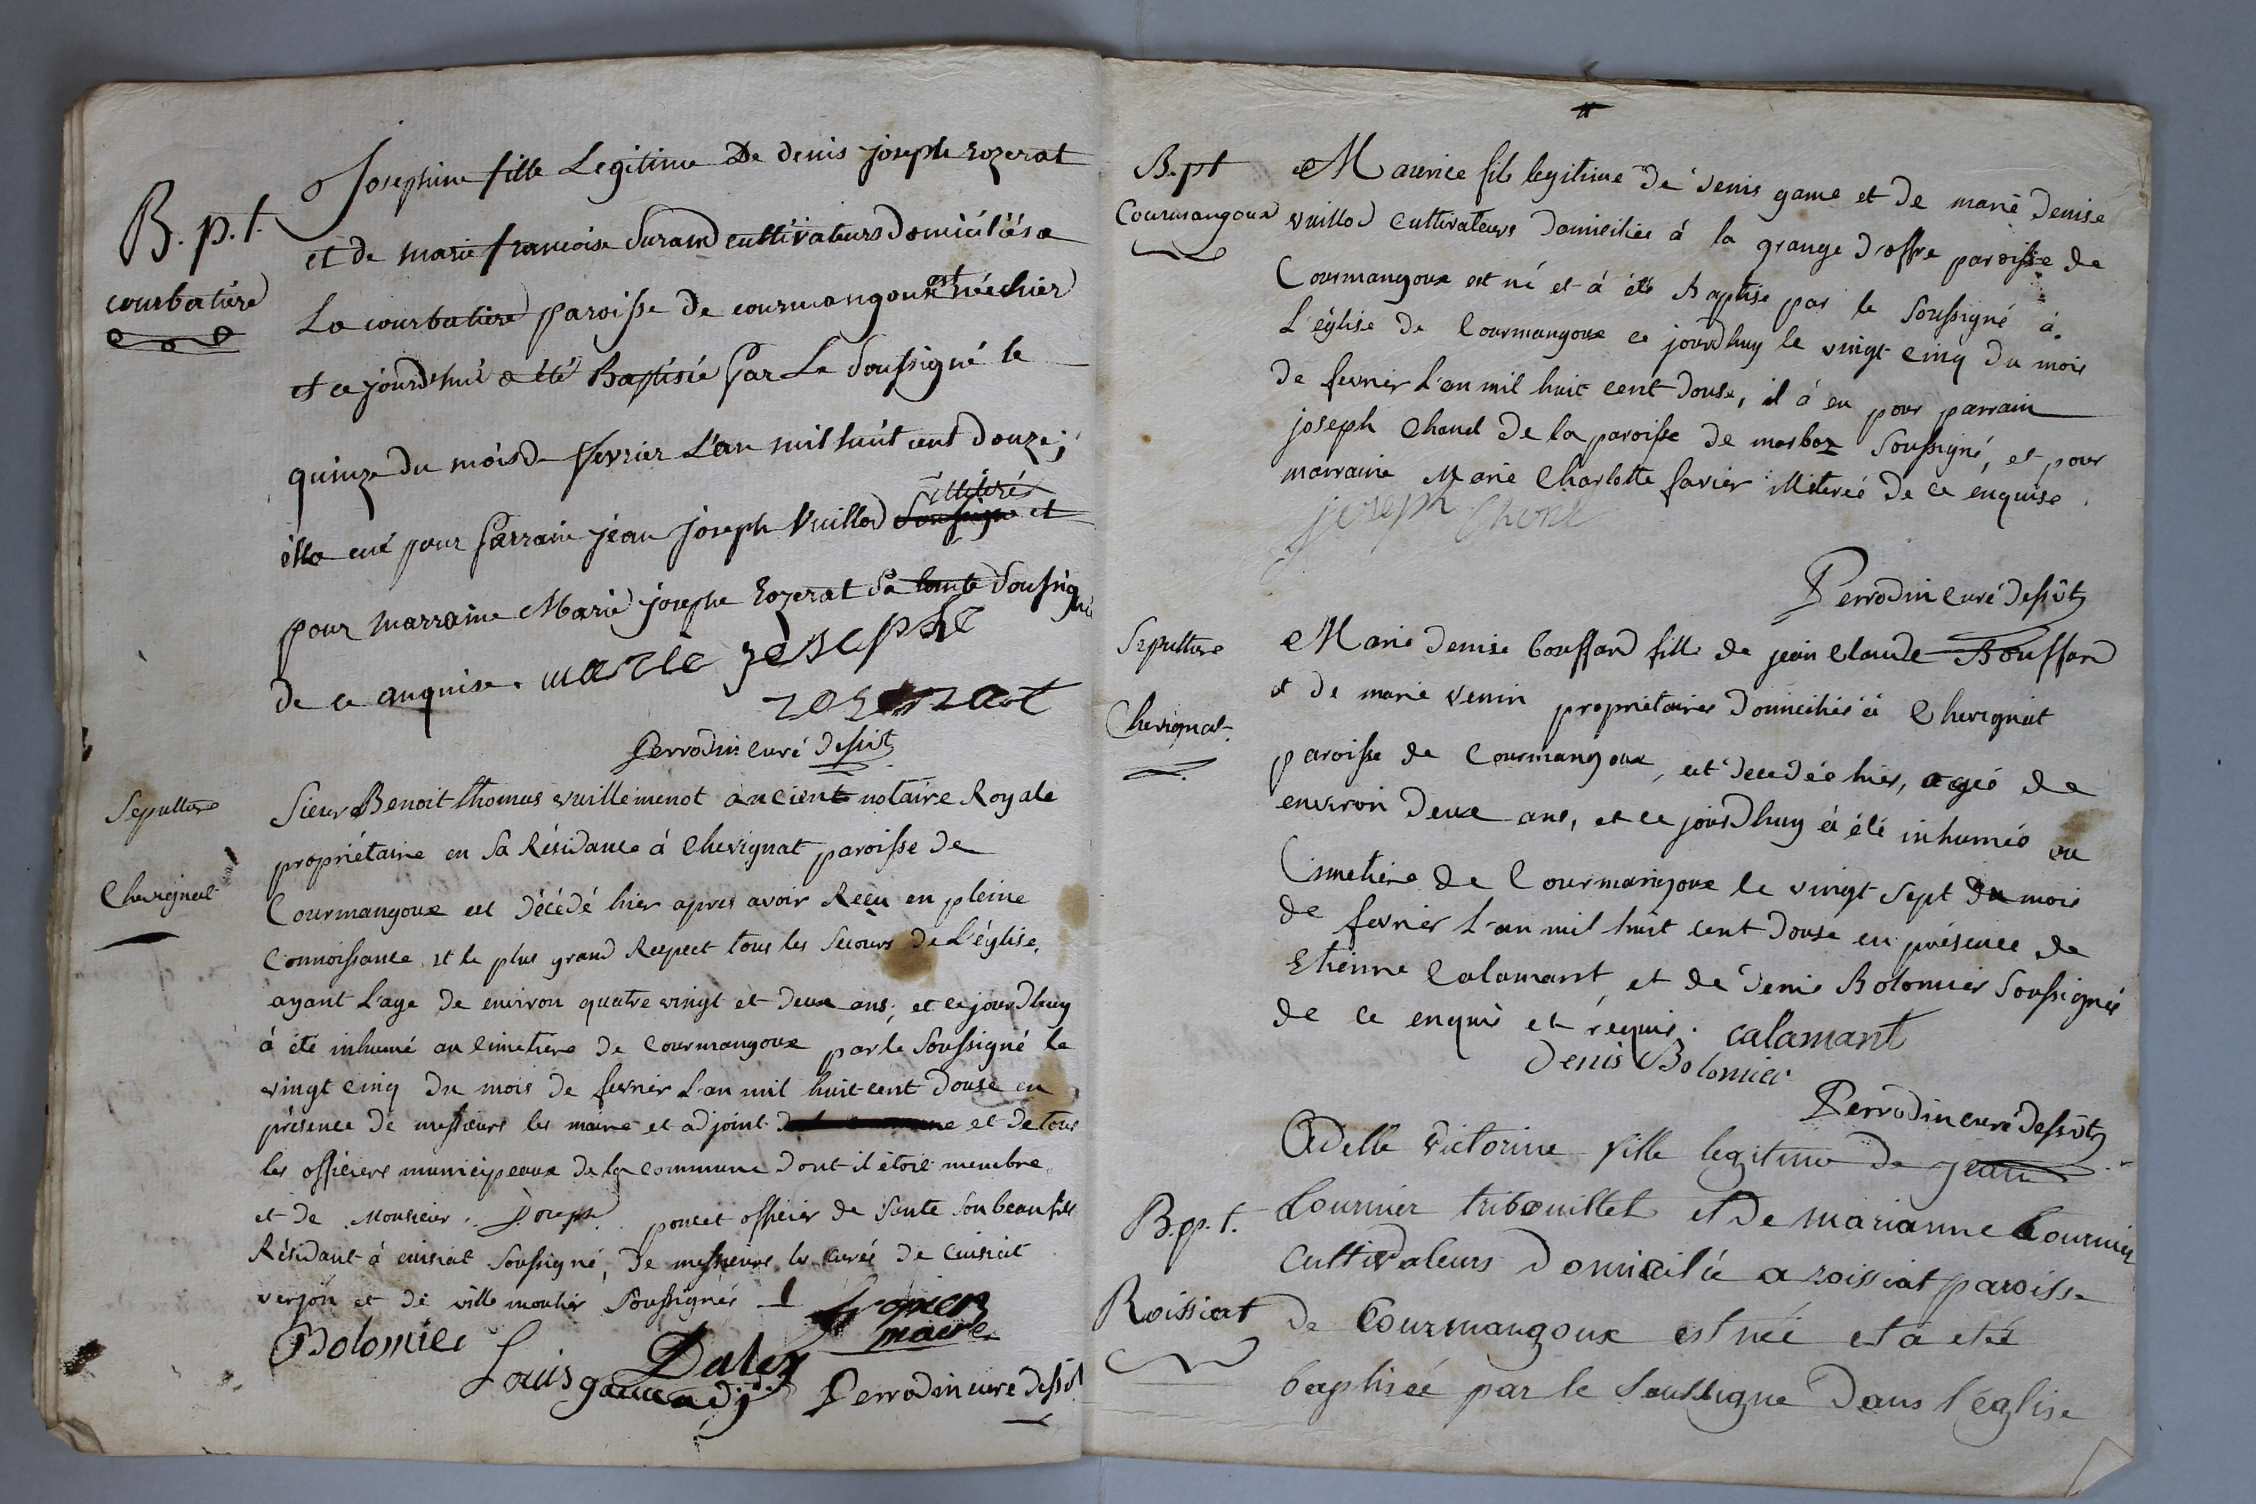 B. p. t.
courbatiere
Josephine fille Legitime De denis joseph rozerat
et de marie francoise durand cultivateurs domiciliés a
La courbatiere paroisse de courmangoux est néé hier
et ce jourd'hui a été Baptisée par Le soussigné le
quinze du mois de fevrier L'an mil huit cent douze;
illitéré
elle eut pour parrain jean joseph Vuillod soussigné et
pour marraine Marie josephe rozerat sa tante soussigné
de ce enquise. marie josephe
rozerat
Perrodin curé dessüt
Sepulture
Chevignat
Sieur Benoit thomas vuillemenot ancient notaire Royale
propriétaire en sa Résidance à Chevignat paroisse de
Courmangoux est décédé hier apres avoir Reçu en pleine
Connoissance et le plus grand Respect tous les secours de L'église,
ayant L'age de environ quatre vingt et deux ans, et ce jourdhuy
à été inhumé au cimetiere de Courmangoux par le soussigné le
vingt cinq du mois de fevrier L'an mil huit cent douse en
présence de messieurs les maire et adjoint et de tous
les officiers municipeaux de la commune dont il étoit membre
et de Monsieur Joseph poncet officier de Santé son beau fils
Résidant à cuisiat soussigné, de messieurs les curés de Cuisiat
verjon et de ville moutier soussignés
Bolomier
maire
Louis game adjt
Perrodin curé dessüt
B. pt
Courmangoux
Maurice fils legitime de denis game et de marie denise
vuillod cultivateurs domiciliés à la grange d'offre paroisse de
Courmangoux est né et à été Baptisé par le soussigné à
L'église de Courmangoux ce jourdhuy le vingt cinq du mois
de fevrier L'an mil huit cent douse, il à eu pour parrain
joseph Chanel de la paroisse de marboz soussigné, et pour
marraine Marie Charlotte favier illiterée de ce enquise
joseph
Perrodin curé dessüt
Sepulture
Chevignat
Marie denise bouffard fille de jean Claude Bouffard
et de marie venin propriétaires domiciliés à Chevignat
paroisse de Courmangoux, est decedée hier, agée de
environ deux ans, et ce jourdhuy à été inhumée au
Cimetiere de Courmangoux le vingt sept du mois
de fevrier L'an mil huit cent douse en présence de
Etienne Calamant, et de denis Bolomier soussignés
de ce enquis et requis. calamant
Denis Bolomier
Perrodin curé dessüt
B. p. t.
Roissiat
Adelle victorine fille legitime de jean
Cournier tribouillet et de marianne Cournier
cultivateurs domicilié a roissiat paroisse
de Courmangoux est née et a eté
baptiséé par le soussigné dans l'église